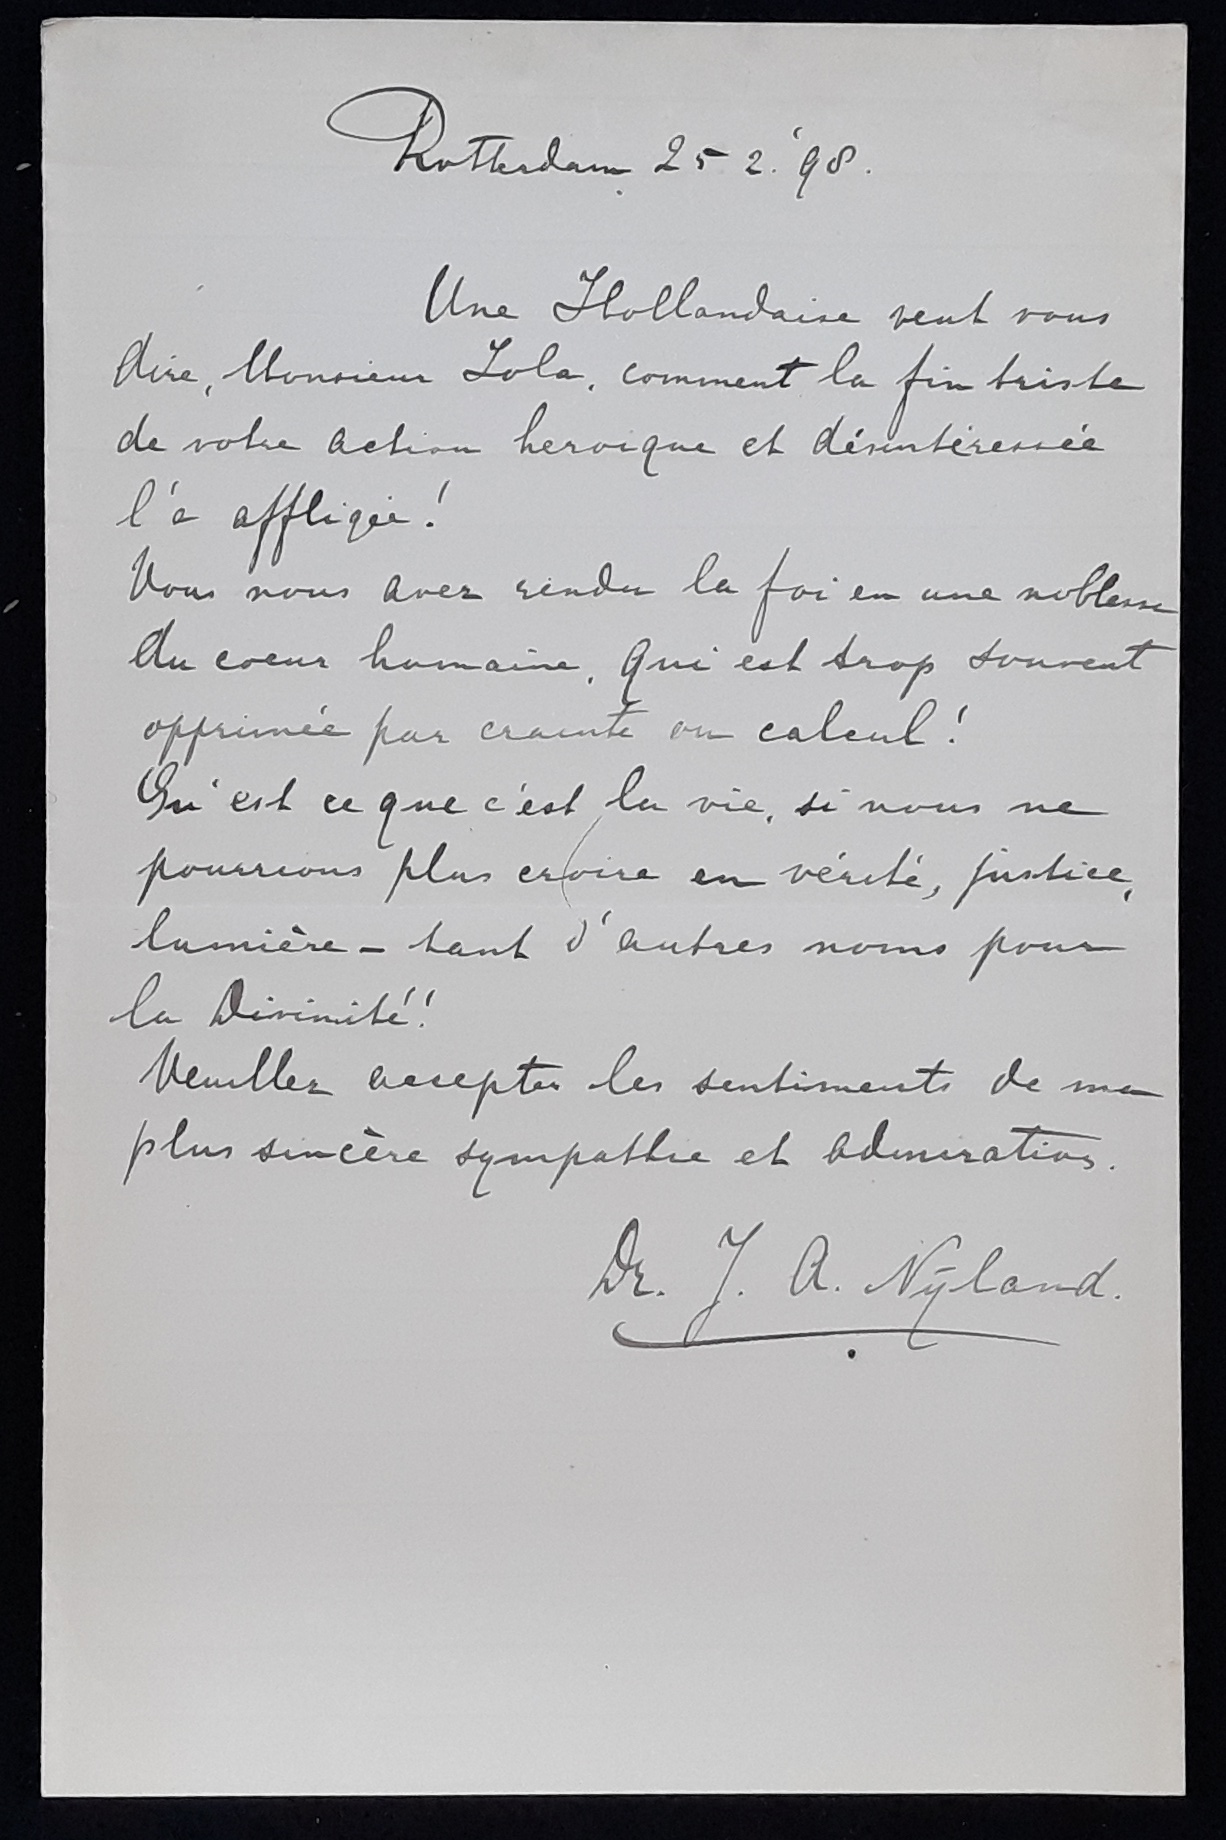 Rotterdam 25.2.'98.
Une Hollandaise veut vous
dire, Monsieur Zola, comment la fin triste
de votre action heroique et désintéressée
l'a affligée!
Vous nous avez rendu la foi en une noblesse
du coeur humaine, qui est trop souvent
opprimée par crainte ou calcul!
Qu'est ce que c'est la vie, si nous ne
pourrions plus croire en vérité, justice,
lumière – tant d'autres noms pour
la Divinité!
Veuillez accepter les sentiments de ma
plus sincère sympathie et admiration.
Dr. J. A. Nÿland.